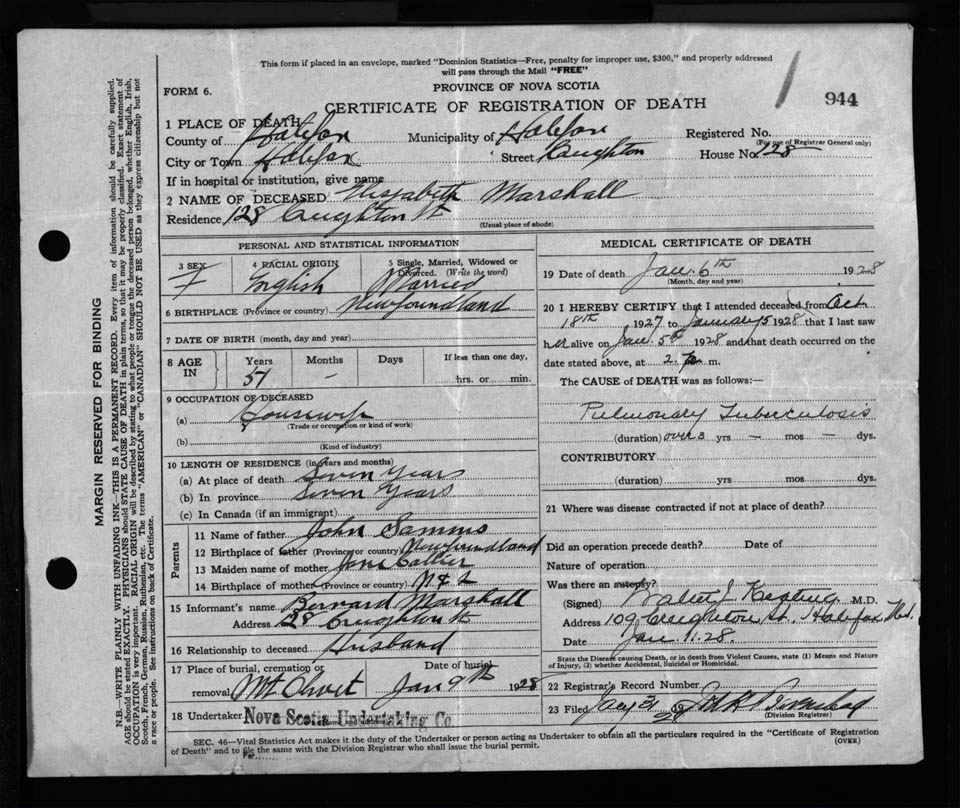 This form if placed in an envelope, marked "Dominion Statistics—Free, penalty for improper use, $300," and properly addressed
will pass through the Mail "FREE"
FORM 6.
PROVINCE OF NOVA SCOTIA
CERTIFICATE OF REGISTRATION OF DEATH
944
1 PLACE OF DEATH
County of Halifax Municipality of Halifax Registered No.
(For use of Registrar General only)
City or Town Halifax Street Creighton House No. 128
If in hospital or institution, give name
2 NAME OF DECEASED Elizabeth Marshall
Residence 128 Creighton St
(Usual place of abode)
PERSONAL AND STATISTICAL INFORMATION
3 SEX 4 RACIAL ORIGIN 5 Single, Married, Widowed or
Divorced. (Write the word)
F English Married
6 BIRTHPLACE (Province or country) Newfoundland
7 DATE OF BIRTH (month, day and year)
8 AGE IN Years Months Days If less than one day,
51 — hrs. or min.
9 OCCUPATION OF DECEASED
(a) Housewife
(Trade or occupation or kind of work)
(b)
(Kind of industry)
10 LENGTH OF RESIDENCE (in years and months)
(a) At place of death Seven Years
(b) In province Seven Years
(c) In Canada (if an immigrant)
Parents
11 Name of father John Samms
12 Birthplace of father (Province or country) Newfoundland
13 Maiden name of mother Jane
14 Birthplace of mother (Province or country)
15 Informant's name Bernard Marshall
Address 28 Creighton St
16 Relationship to deceased Husband
17 Place of burial, cremation or removal Mt Olivet Date of burial Jan 9th 1928
18 Undertaker Nova Scotia Undertaking Co.
MEDICAL CERTIFICATE OF DEATH
19 Date of death Jan. 6th 1928
(Month, day and year)
20 I HEREBY CERTIFY that I attended deceased from Oct
18th 1927 to January 5 1928 that I last saw
her alive on Jan. 5th 1928 and that death occurred on the
date stated above, at 2 p. m.
The CAUSE of DEATH was as follows:
Pulmonary Tuberculosis
(duration) over 3 yrs — mos — dys.
CONTRIBUTORY
(duration) yrs mos dys.
21 Where was disease contracted if not at place of death?
Did an operation precede death? Date of
Nature of operation
Was there an autopsy?
(Signed) M.D.
Address 109 Creighton St. Halifax, N.S.
Date Jan. 11. 28.
State the Disease causing Death, or in death from Violent Causes, state (1) Means and Nature
of Injury, (2) whether Accidental, Suicidal or Homicidal.
22 Registrar's Record Number
23 Filed 31
(Division Registrar)
SEC. 46—Vital Statistics Act makes it the duty of the Undertaker or person acting as Undertaker to obtain all the particulars required in the "Certificate of Registration
of Death" and to file the same with the Division Registrar who shall issue the burial permit.
(OVER)
MARGIN RESERVED FOR BINDING
N.B.—WRITE PLAINLY WITH UNFADING INK—THIS IS A PERMANENT RECORD. Every item of information should be carefully supplied.
AGE should be stated EXACTLY. PHYSICIANS should STATE CAUSE OF DEATH in plain terms, so that it may be properly classified. Exact statement of
OCCUPATION is very important. RACIAL ORIGIN will be described by stating to what people or tongue the deceased person belonged, whether English, Irish,
Scotch, French, German, Russian, Ruthenian, etc. The terms "AMERICAN" or "CANADIAN" SHOULD NOT BE USED as they express citizenship but not
a race or people. See instructions on back of Certificate.